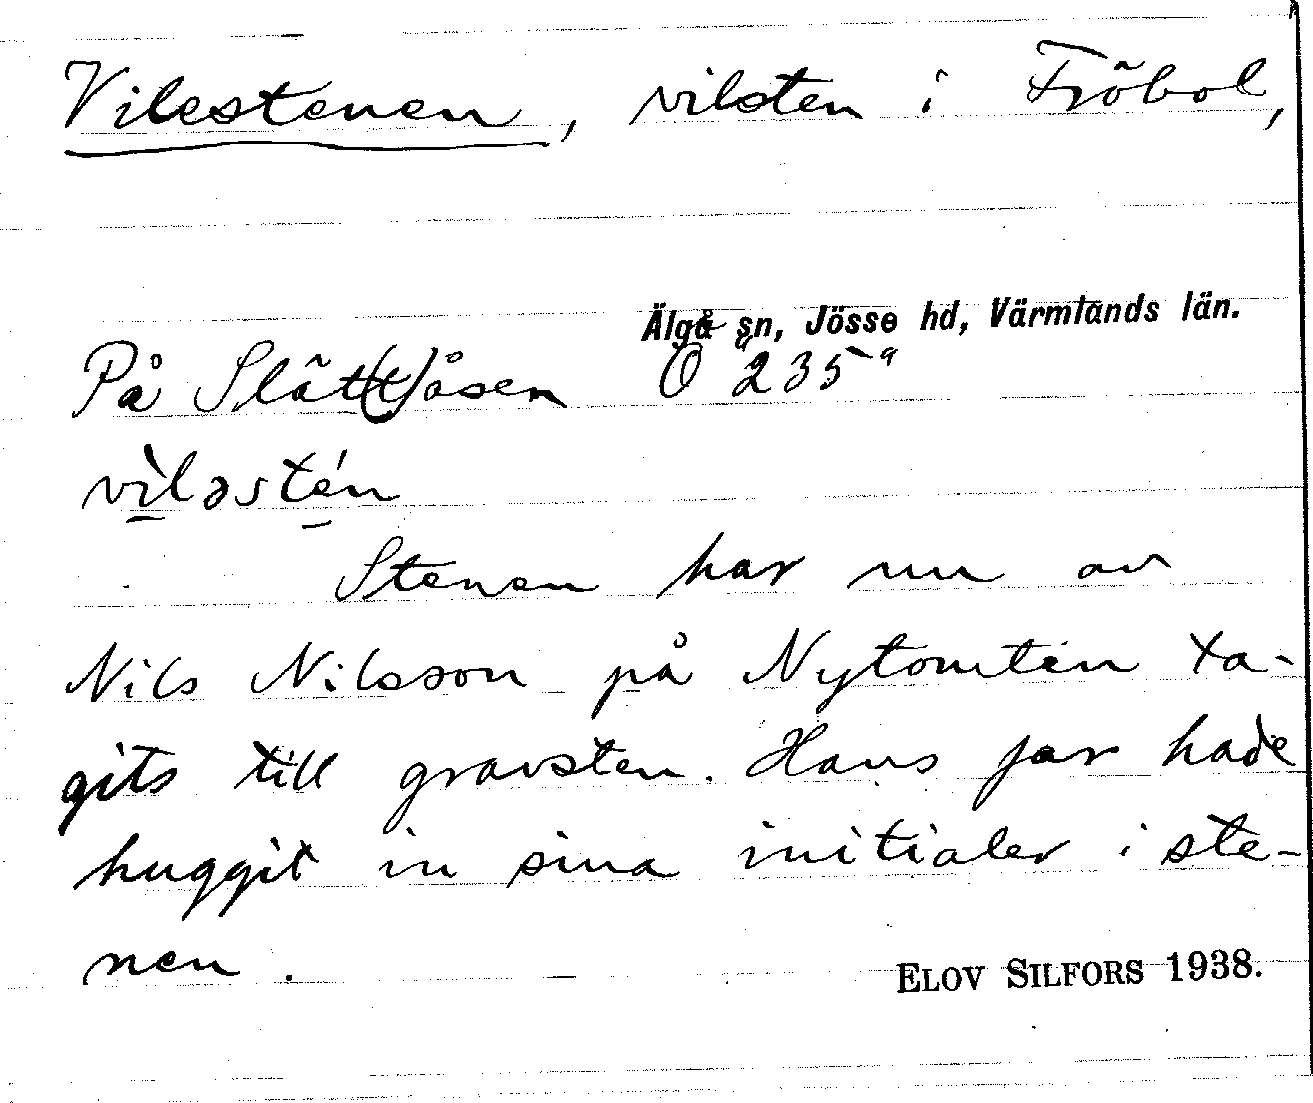 Vilestenen, vilsten i Fröbol,
Älgå sn, Jösse hd, Värmlands län.
På Slätt(t)åsen Ö 235a
vìləstén
Stenen har nu av
Nils Nilsson på Nytomten ta-
gits till gravsten. Hans far hade
huggit in sina initialer i ste-
nen.
ELOV SILFORS 1938.